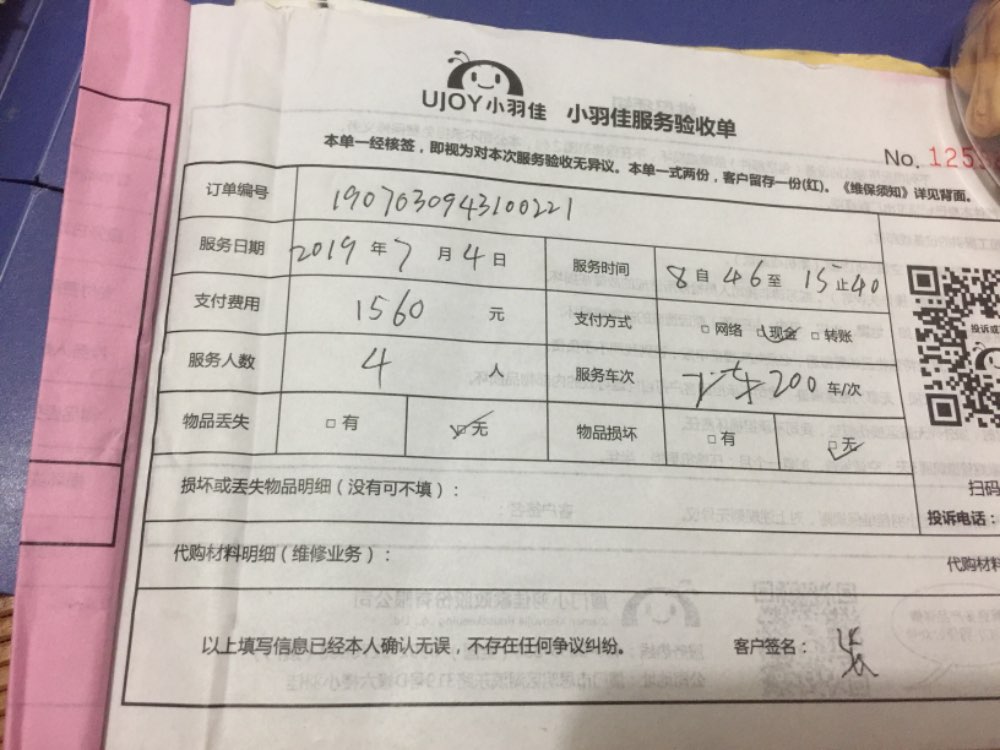 UJOY小羽佳 小羽佳服务验收单
本单一经核签，即视为对本次服务验收无异议。本单一式两份，客户留存一份(红)。《维保须知》详见背面。
No. 125
订单编号 1907030943100221
服务日期 2019 年 7 月 4 日 服务时间 8 自 46 至 15 止 40
支付费用 1560 元 支付方式 □ 网络 □ 现金 □ 转账
服务人数 4 人 服务车次 200 车/次
物品丢失 □ 有 □ 无 物品损坏 □ 有 □ 无
损坏或丢失物品明细（没有可不填）：
扫码
投诉电话：
代购材料明细（维修业务）：
代购材料
以上填写信息已经本人确认无误，不存在任何争议纠纷。 客户签名：